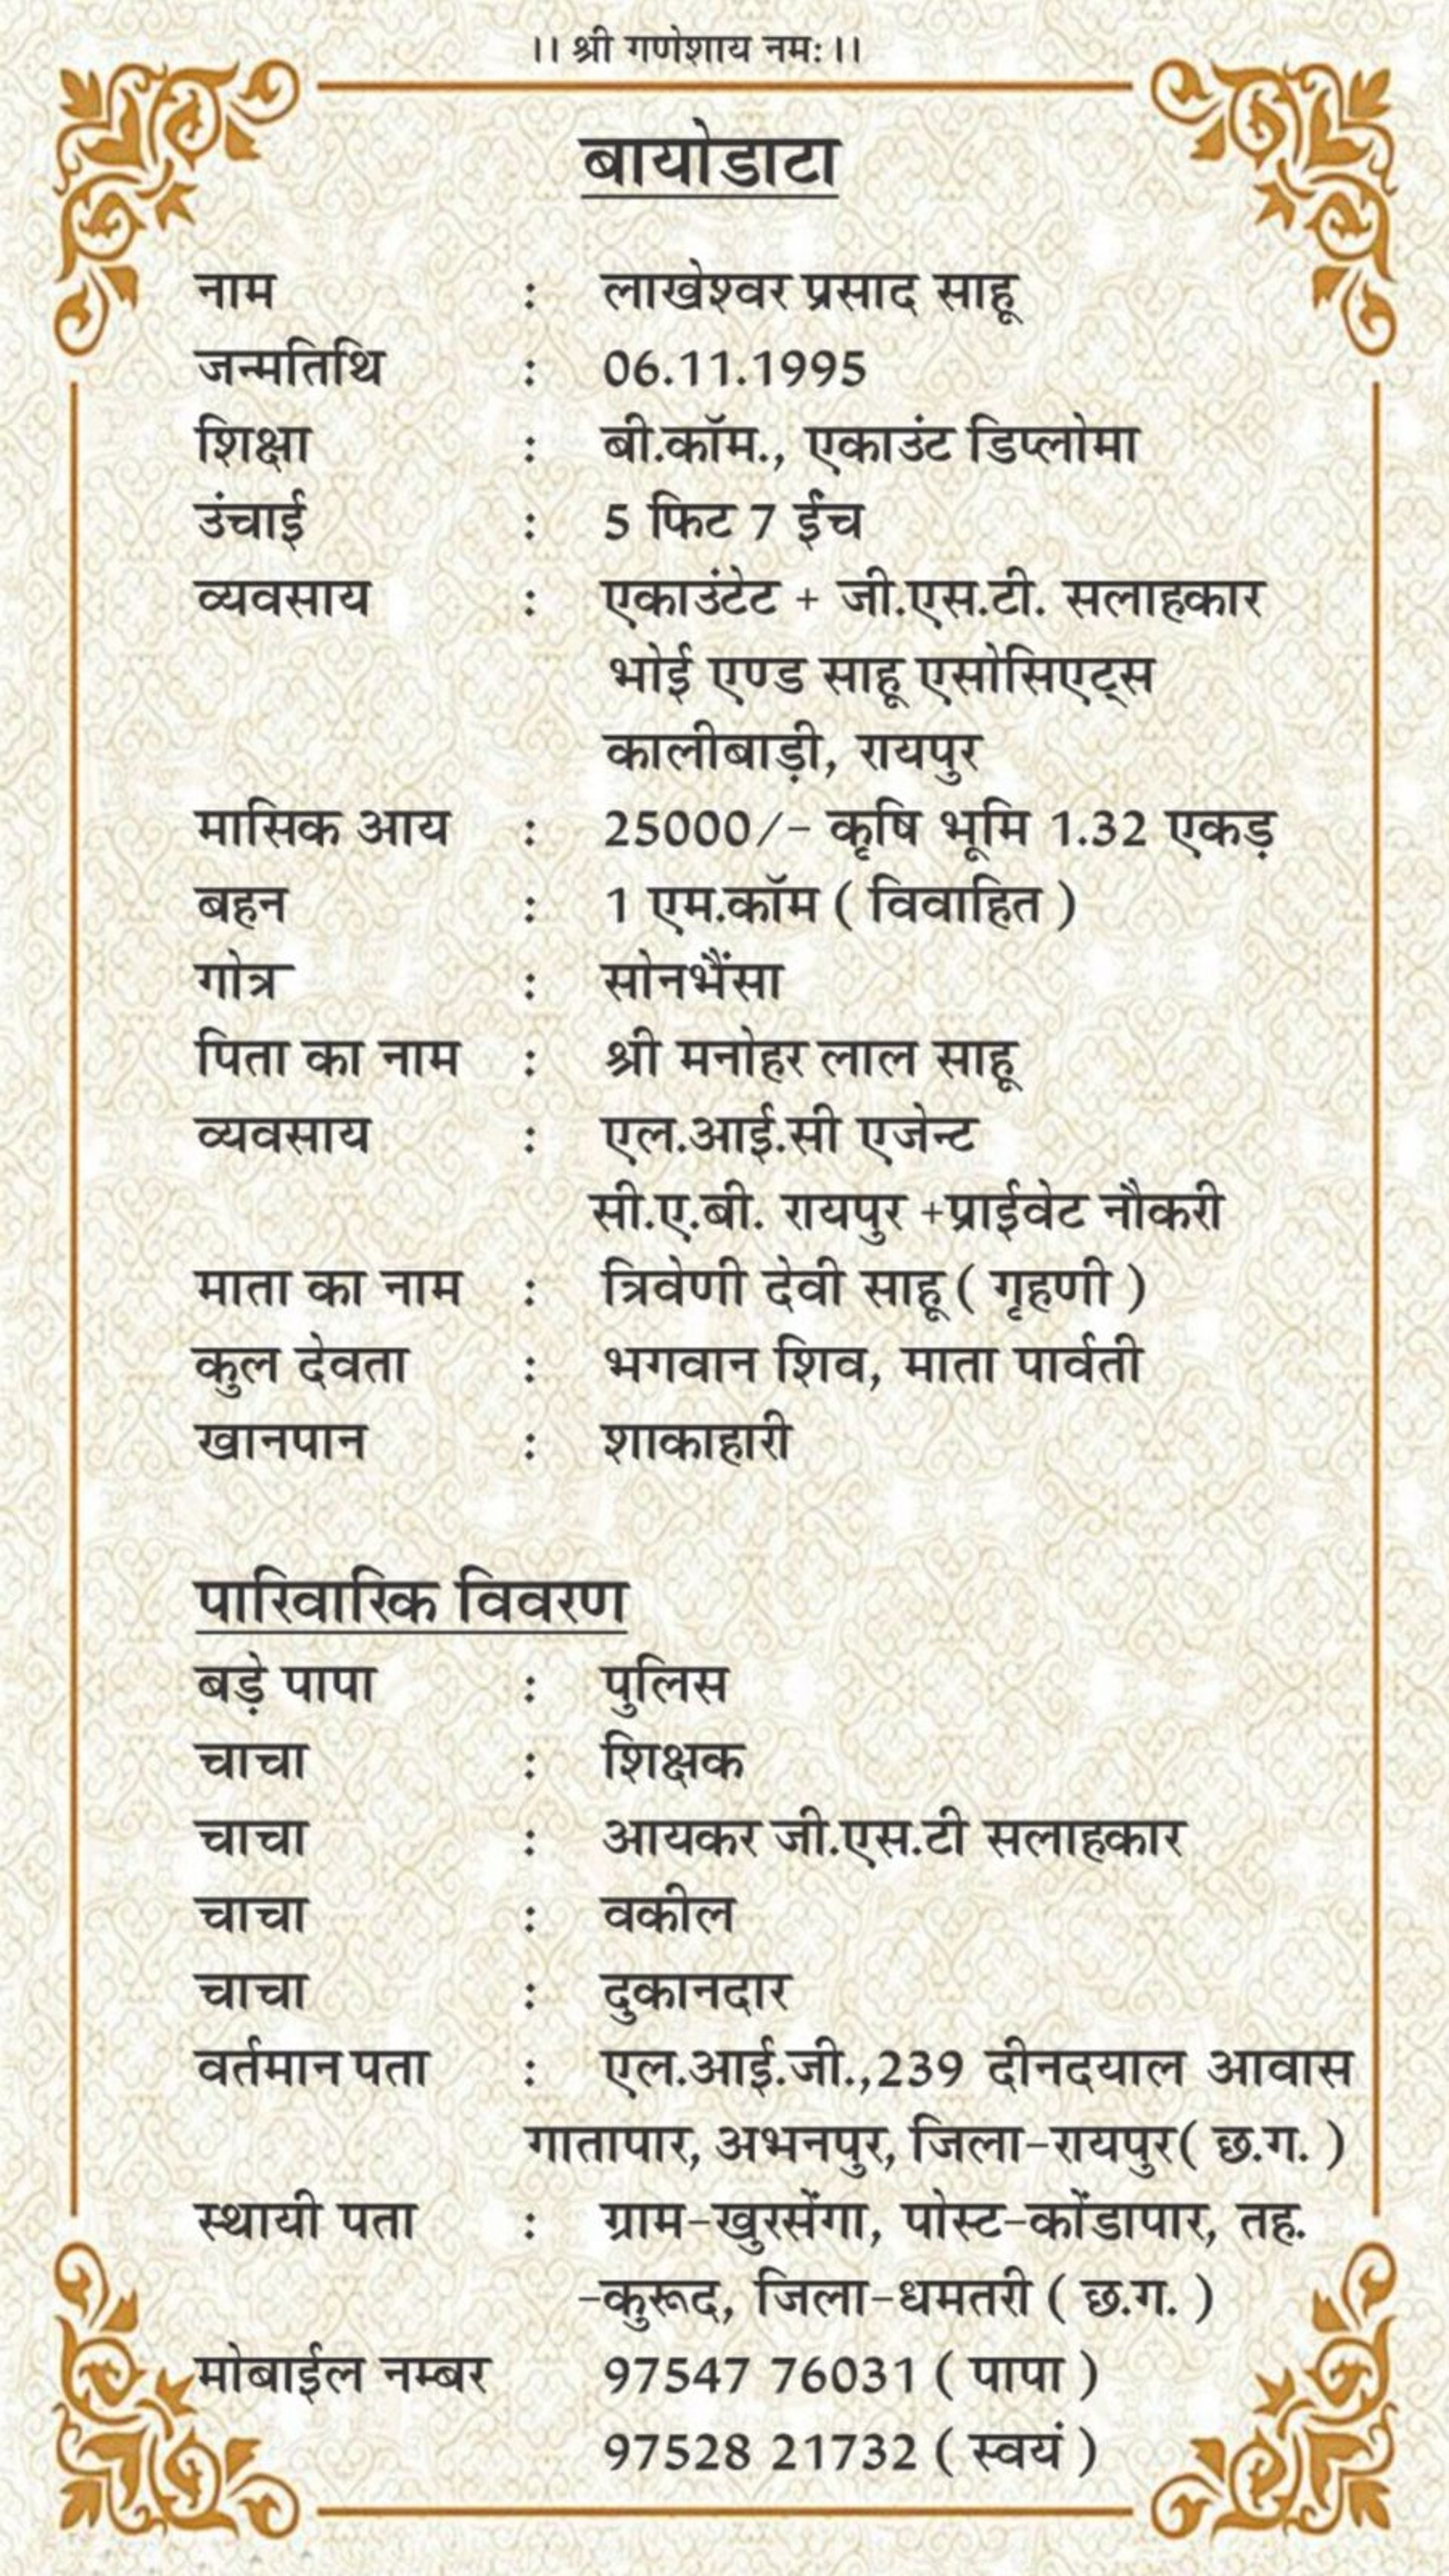 ।। श्री गणेशाय नमः ।।
बायोडाटा
नाम : लाखेश्वर प्रसाद साहू
जन्मतिथि : 06.11.1995
शिक्षा : बी.कॉम., एकाउंट डिप्लोमा
उंचाई : 5 फिट 7 ईंच
व्यवसाय : एकाउंटेट + जी.एस.टी. सलाहकार
भोई एण्ड साहू एसोसिएट्स
कालीबाड़ी, रायपुर
मासिक आय : 25000/- कृषि भूमि 1.32 एकड़
बहन : 1 एम.कॉम ( विवाहित )
गोत्र : सोनभैंसा
पिता का नाम : श्री मनोहर लाल साहू
व्यवसाय : एल.आई.सी एजेन्ट
सी.ए.बी. रायपुर +प्राईवेट नौकरी
माता का नाम : त्रिवेणी देवी साहू ( गृहणी )
कुल देवता : भगवान शिव, माता पार्वती
खानपान : शाकाहारी
पारिवारिक विवरण
बड़े पापा : पुलिस
चाचा : शिक्षक
चाचा : आयकर जी.एस.टी सलाहकार
चाचा : वकील
चाचा : दुकानदार
वर्तमान पता : एल.आई.जी.,239 दीनदयाल आवास
गातापार, अभनपुर, जिला-रायपुर( छ.ग. )
स्थायी पता : ग्राम-खुरसेंगा, पोस्ट-कोंडापार, तह.
-कुरूद, जिला-धमतरी ( छ.ग. )
मोबाईल नम्बर 97547 76031 ( पापा )
97528 21732 ( स्वयं )